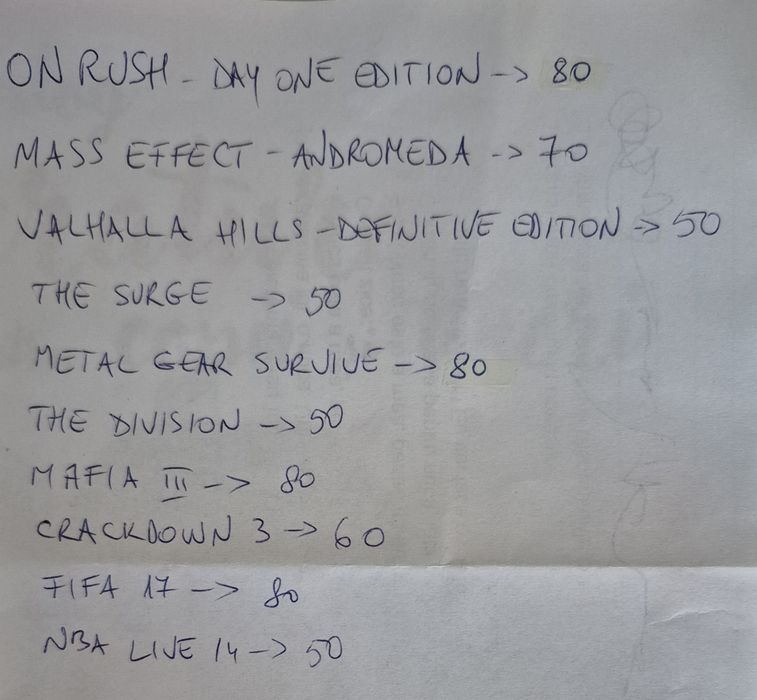 ON RUSH - DAY ONE EDITION -> 80
MASS EFFECT - ANDROMEDA -> 70
VALHALLA HILLS - DEFINITIVE EDITION -> 50
THE SURGE -> 50
METAL GEAR SURVIVE -> 80
THE DIVISION -> 50
MAFIA III -> 80
CRACKDOWN 3 -> 60
FIFA 17 -> 80
NBA LIVE 14 -> 50